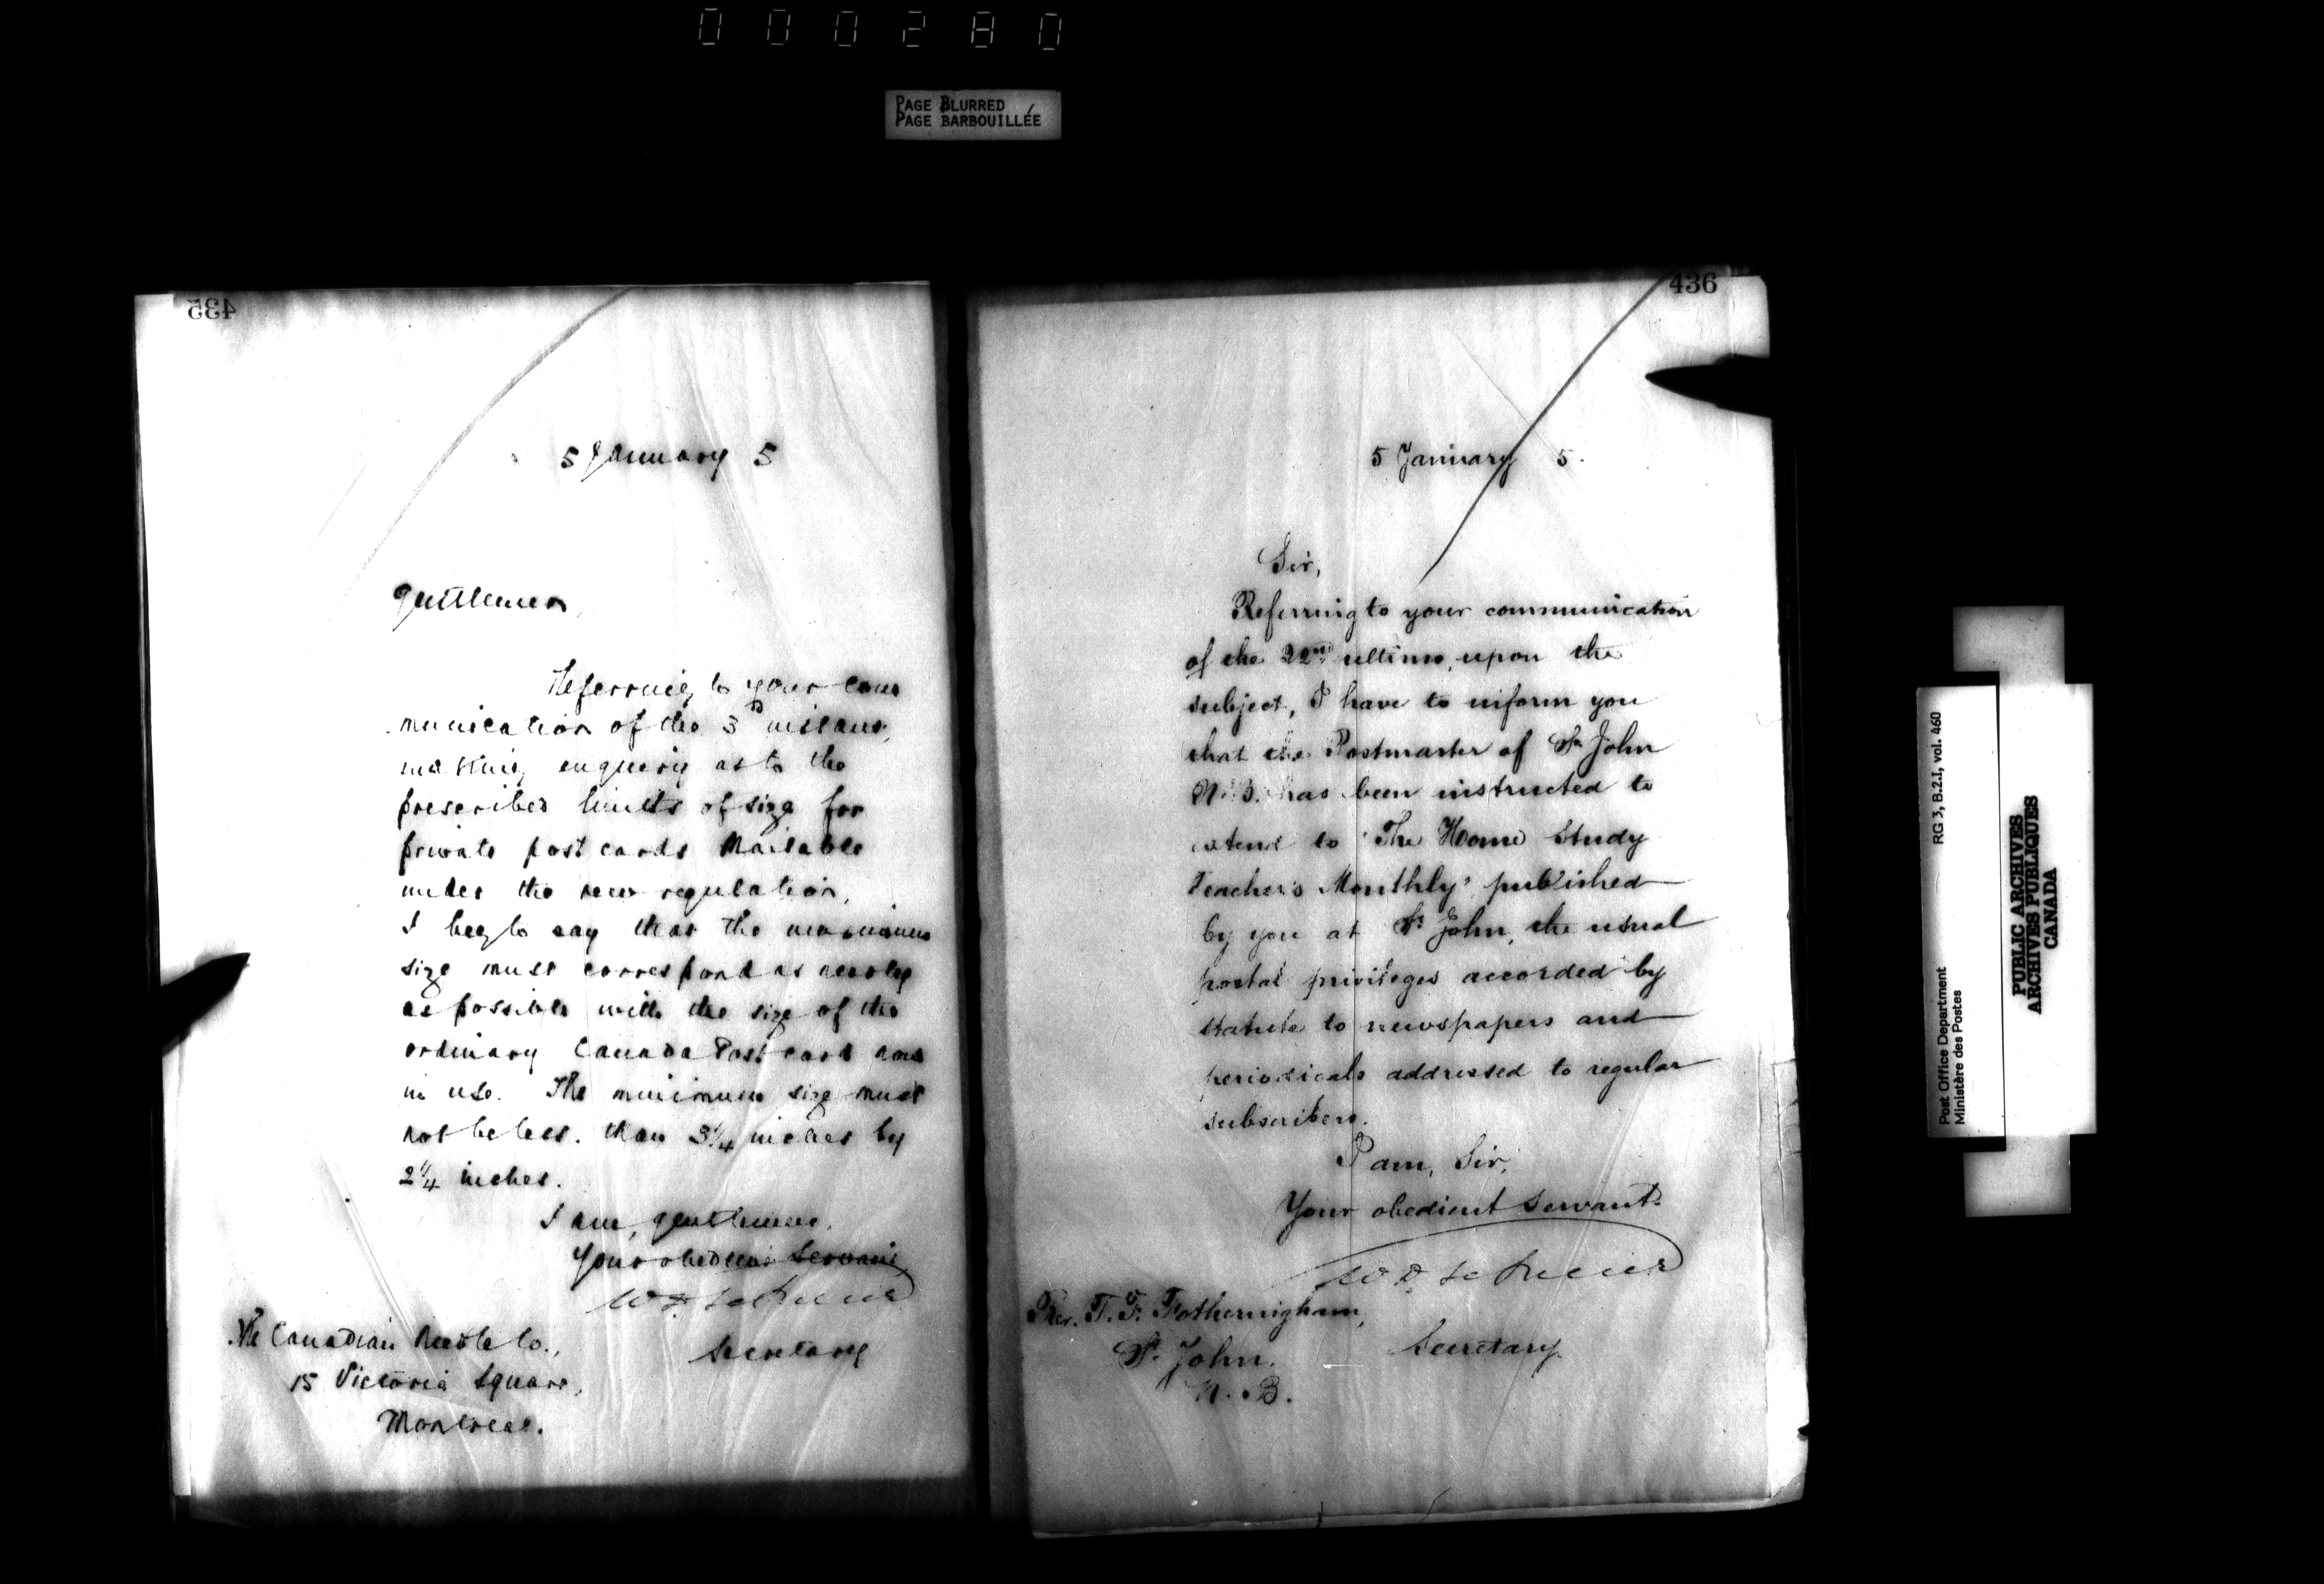 000280
PAGE BLURRED
PAGE BARBOUILLÉE
435
5 January 5
Gentlemen,
Referring to your com
munication of the 3rd instant,
making enquiry as to the
prescribed limits of size for
private post cards Mailable
under the new regulation,
I beg to say that the maximum
size must correspond as nearly
as possible with the size of the
ordinary Canada Post card now
in use. The minimum size must
not be less than 3 1/4 inches by
2 1/4 inches.
I am, gentlemen,
Your obedient Servant
W D LeSueur
Secretary
The Canadian Needle Co.,
15 Victoria Square,
Montreal.
436
5 January 5.
Sir,
Referring to your communication
of the 22nd ultimo, upon the
subject, I have to inform you
that the Postmaster of St. John
N.B. has been instructed to
extend to "The Home Study
Teacher's Monthly" published
by you at St. John, the usual
postal privileges accorded by
statute to newspapers and
periodicals addressed to regular
subscribers.
I am, Sir,
Your obedient Servant
W D LeSueur
Secretary.
Rev. T. F. Fotheringham,
St. John.
N. B.
Post Office Department
Ministère des Postes
RG 3, B.2.I, vol. 460
PUBLIC ARCHIVES
ARCHIVES PUBLIQUES
CANADA